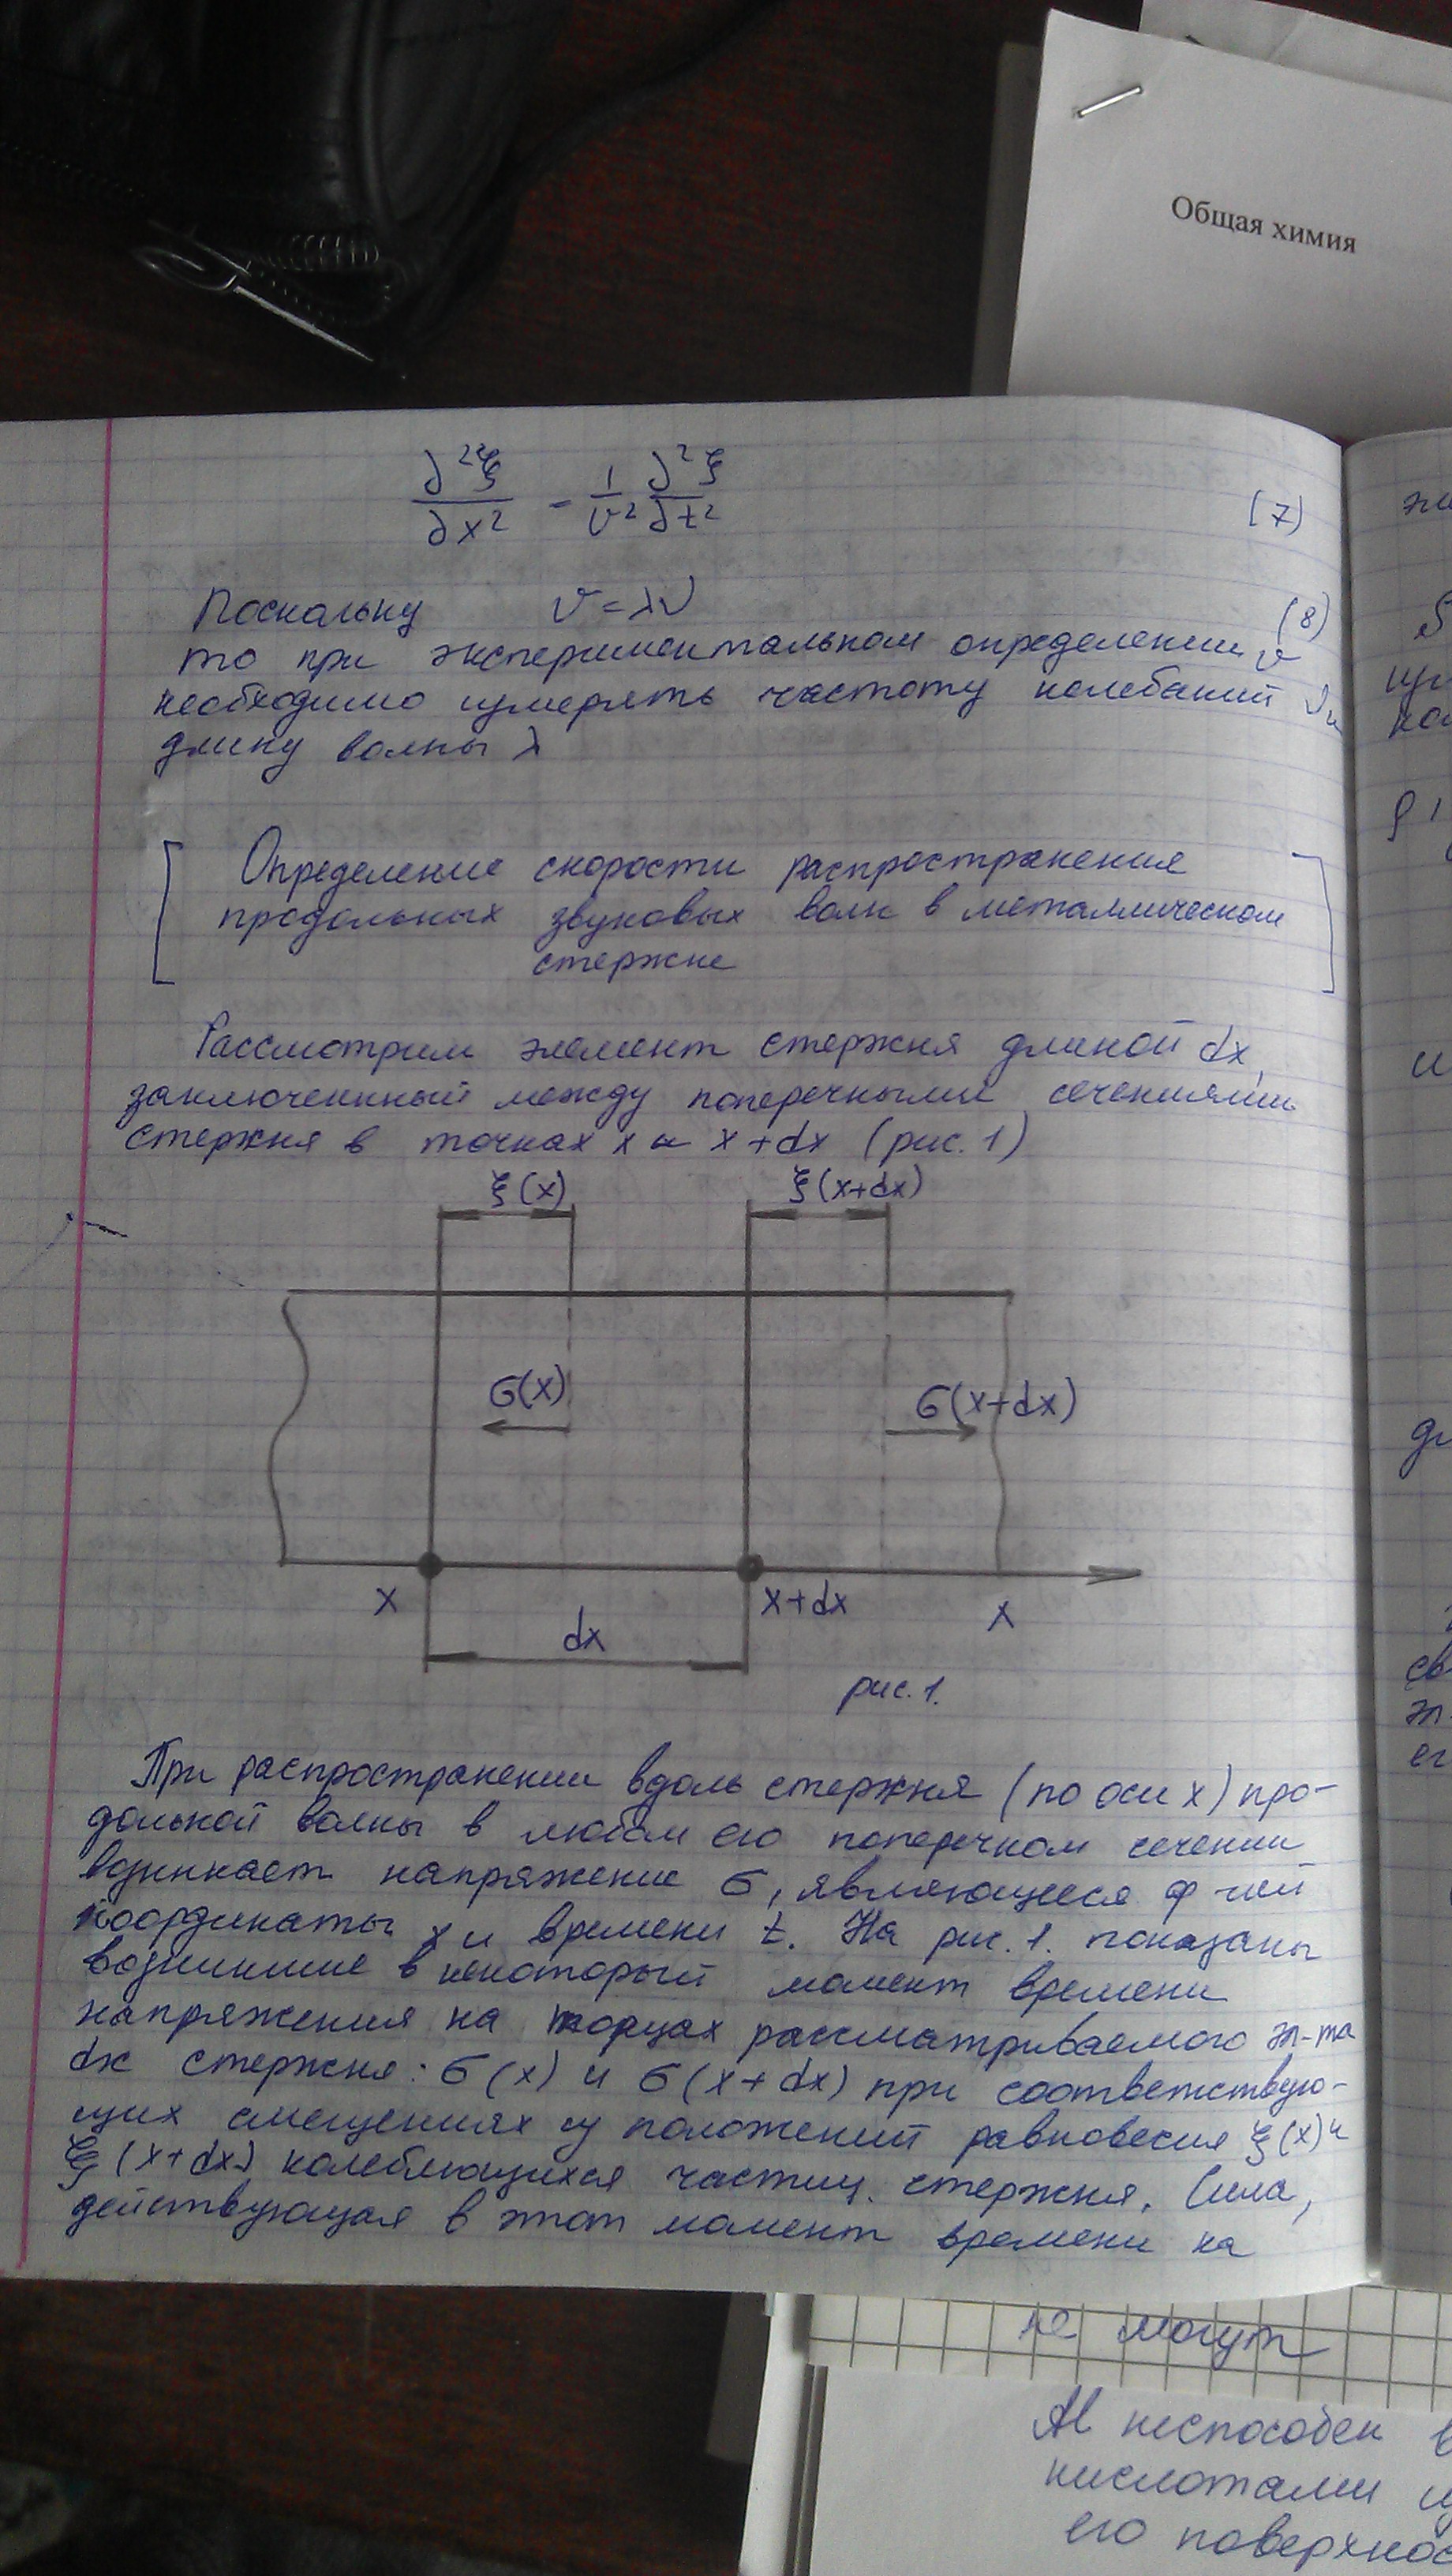 Общая химия
∂²ξ/∂x² = 1/v² ∂²ξ/∂t² (7)
Поскольку v = λν (8)
то при экспериментальном определении v
необходимо измерять частоту колебаний ν и
длину волны λ
Определение скорости распространения
продольных звуковых волн в металлическом
стержне
Рассмотрим элемент стержня длиной dx,
заключенный между поперечными сечениями
стержня в точках x и x+dx (рис. 1)
ξ(x) ξ(x+dx)
σ(x) σ(x+dx)
x x+dx x
dx
рис. 1.
При распространении вдоль стержня (по оси x) про-
дольной волны в любом его поперечном сечении
возникает напряжение σ, являющееся ф-цией
координаты x и времени t. На рис. 1. показаны
возникшие в некоторый момент времени
напряжения на торцах рассматриваемого эл-та
dx стержня: σ(x) и σ(x+dx) при соответствую-
щих смещениях из положений равновесия ξ(x) и
ξ(x+dx) колеблющихся частиц стержня. Сила,
действующая в этот момент времени на
не могут
Al неспособен в
кислотами
его поверхнос